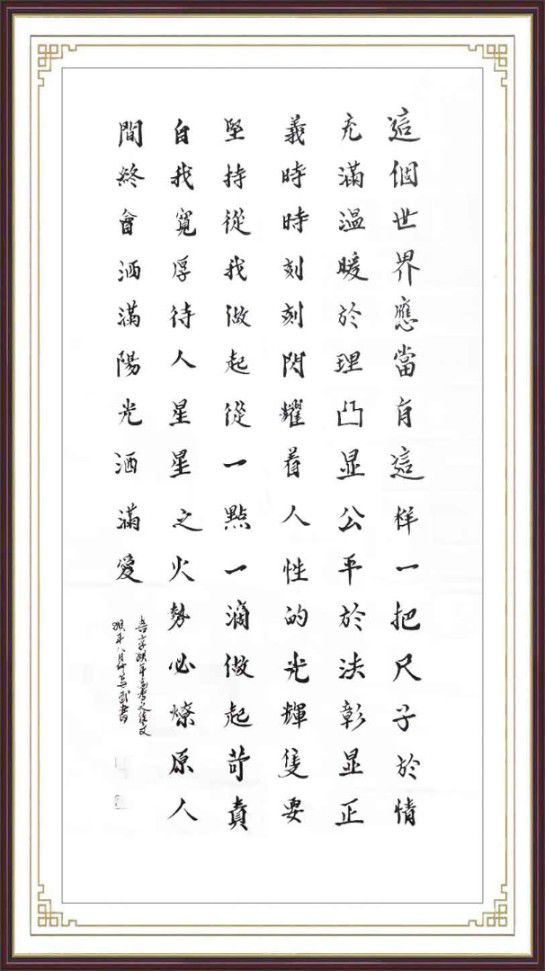 這個世界應當有這样一把尺子於情
充滿温暖於理凸显公平於法彰显正
義時時刻刻閃耀着人性的光輝隻要
堅持從我做起從一點一滴做起苛責
自我寬厚待人星星之火勢必燎原人
間終會洒滿陽光洒滿愛